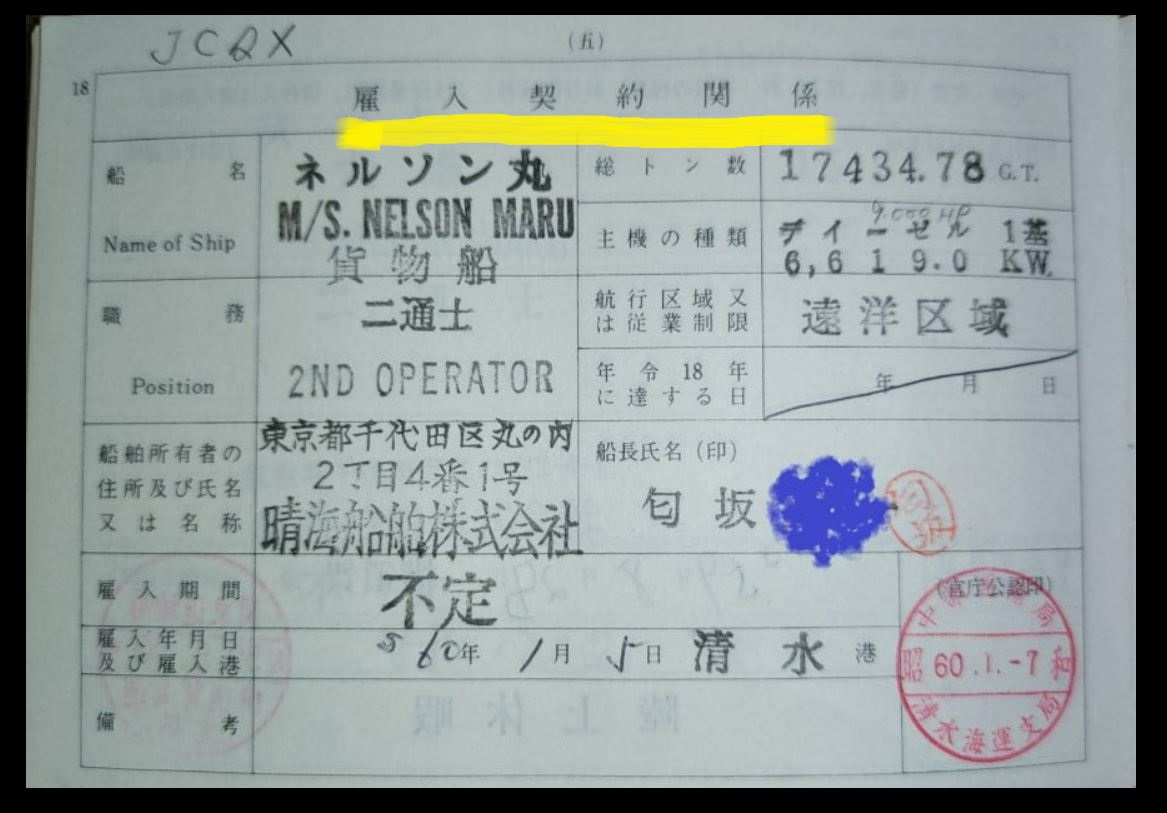 JCQX
(五)
18
雇入契約関係
船名
Name of Ship
ネルソン丸
M/S. NELSON MARU
貨物船
総トン数
17434.78 G.T.
主機の種類
9.000 HP
ディーゼル 1基
6,619.0 KW
職務
Position
二通士
2ND OPERATOR
航行区域又
は従業制限
遠洋区域
年令18年
に達する日
年 月 日
船舶所有者の
住所及び氏名
又は名称
東京都千代田区丸の内
2丁目4番1号
晴海船舶株式会社
船長氏名(印)
匂坂
雇入期間
不定
(官庁公認印)
雇入年月日
及び雇入港
S60年 1月 5日 清水 港
昭和
60.1.-7
清水海運支局
備考